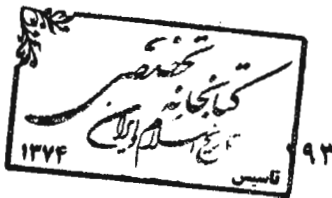 کتابخانه تخصصی
تاریخ اسلام و ایران
۱۳۷۴
تاسیس
۹۳